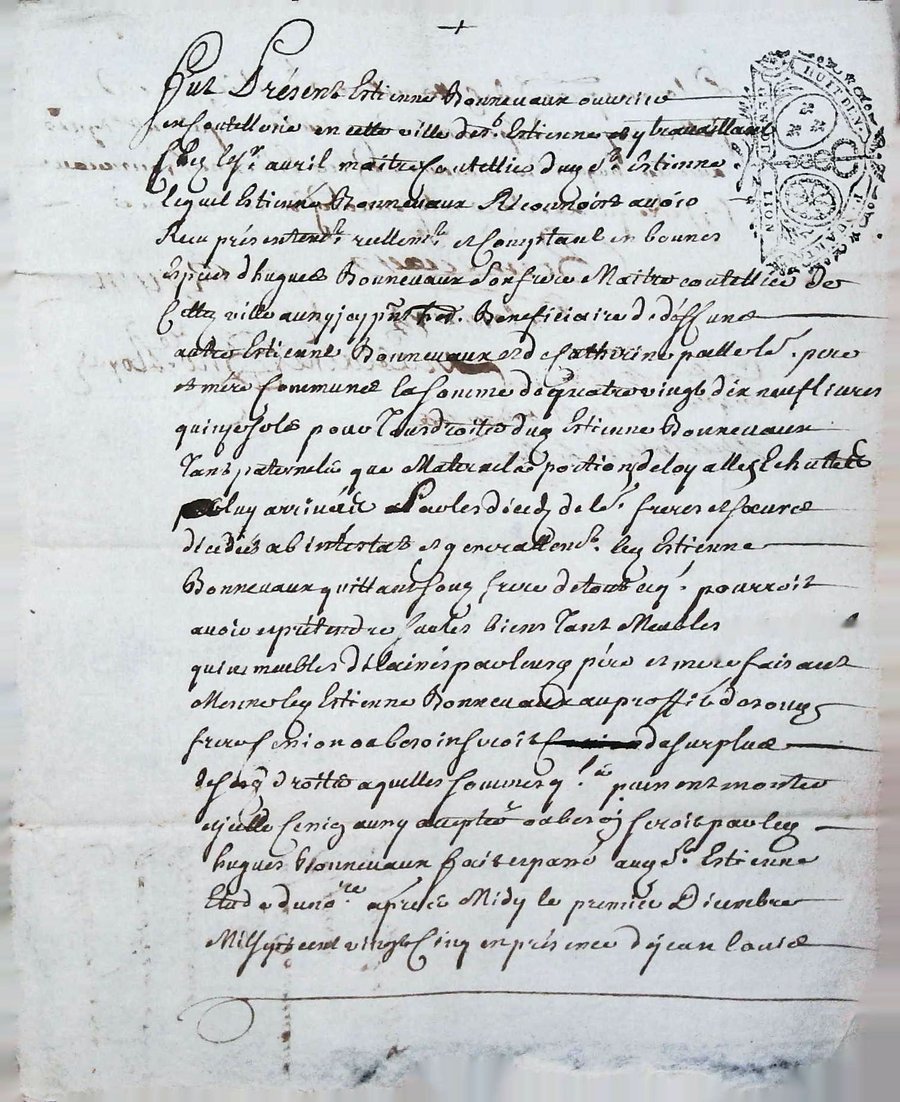 +
HUIT DEN.
P. QUART
GEN. DE LION
Fut Présent Estienne Bonnevaux ouvrier
en Coutellerie en cette ville de St. Estienne et y travaillant
Chez le Sr avril maitre Coutellie dud St Estienne
lequel Estienne Bonnevaux Reconnoist avoir
Receu présentemt reellemt et Comptant en bonnes
Espèces d'hugues Bonnevaux Son frere Maitre coutellier de
Cette ville aussy icy pnt Beneficiaire de deffunct
autre Estienne Bonnevaux et de Catherine palle Les pere
et mère Communs la Somme de quatre vingt dix neuf livres
quinze Sols pour Tous droits dud Estienne Bonnevaux
Tant paternels que Maternels portions de loy alles Echuttes
luy arrivées Par les décedz de Les freres et Sœurs
décédés ab intestat et generallemt led Estienne
Bonnevaux quittant Sond frere de tout ce q. pourroit
avoir et prétendre Sur les biens Tant Meubles
qu'immeubles délaissés par leursd père et mere faisant
Mesme led Estienne Bonnevaux au proffit de Sond
frere Cession ou besoin Seroit de Surplus
de Sesd droits a quelles Sommes q. puissent monter
et icelle Cession aussy accepter ou besoin Seroit par led
hugues Bonnevaux fait et passé aud St. Estienne
Etude du nore après Midy le premier Décembre
Mil Sept cent vingt Cinq en présence de jean louis